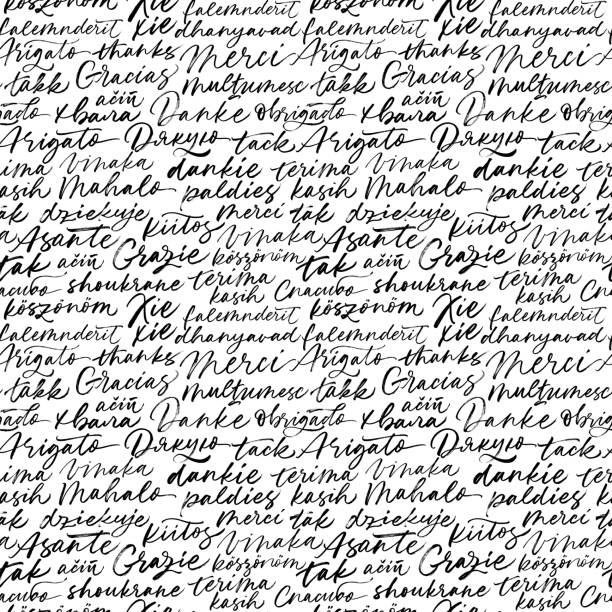 köszönöm Xie falemnderit köszönöm Xie falemnderit
falemnderit Xie dhanyavad falemnderit Xie dhanyavad
Arigato thanks Merci Arigato thanks Merci
takk Gracias multumesc takk Gracias multumesc
хвала ačiū Danke obrigado хвала ačiū Danke obrigado
Arigato Дякую tack Arigato Дякую tack
vinaka dankie terima vinaka dankie terima
kasih Mahalo paldies kasih Mahalo paldies kasih
tāk dziekuje merci tāk dziekuje merci tāk
Asante kiitos vinaka Asante kiitos vinaka
tak ačiū Grazie köszönöm tak ačiū Grazie köszönöm
shoukrane terima kasih Спасибо shoukrane terima kasih
köszönöm Xie falemnderit köszönöm Xie falemnderit
falemnderit Xie dhanyavad falemnderit Xie dhanyavad
Arigato thanks Merci Arigato thanks Merci
takk Gracias multumesc takk Gracias multumesc
хвала ačiū Danke obrigado хвала ačiū Danke obrigado
Arigato Дякую tack Arigato Дякую tack
vinaka dankie terima vinaka dankie terima
kasih Mahalo paldies kasih Mahalo paldies kasih
tāk dziekuje merci tāk dziekuje merci tāk
Asante kiitos vinaka Asante kiitos vinaka
tak ačiū Grazie köszönöm tak ačiū Grazie köszönöm
shoukrane terima kasih Спасибо shoukrane terima kasih